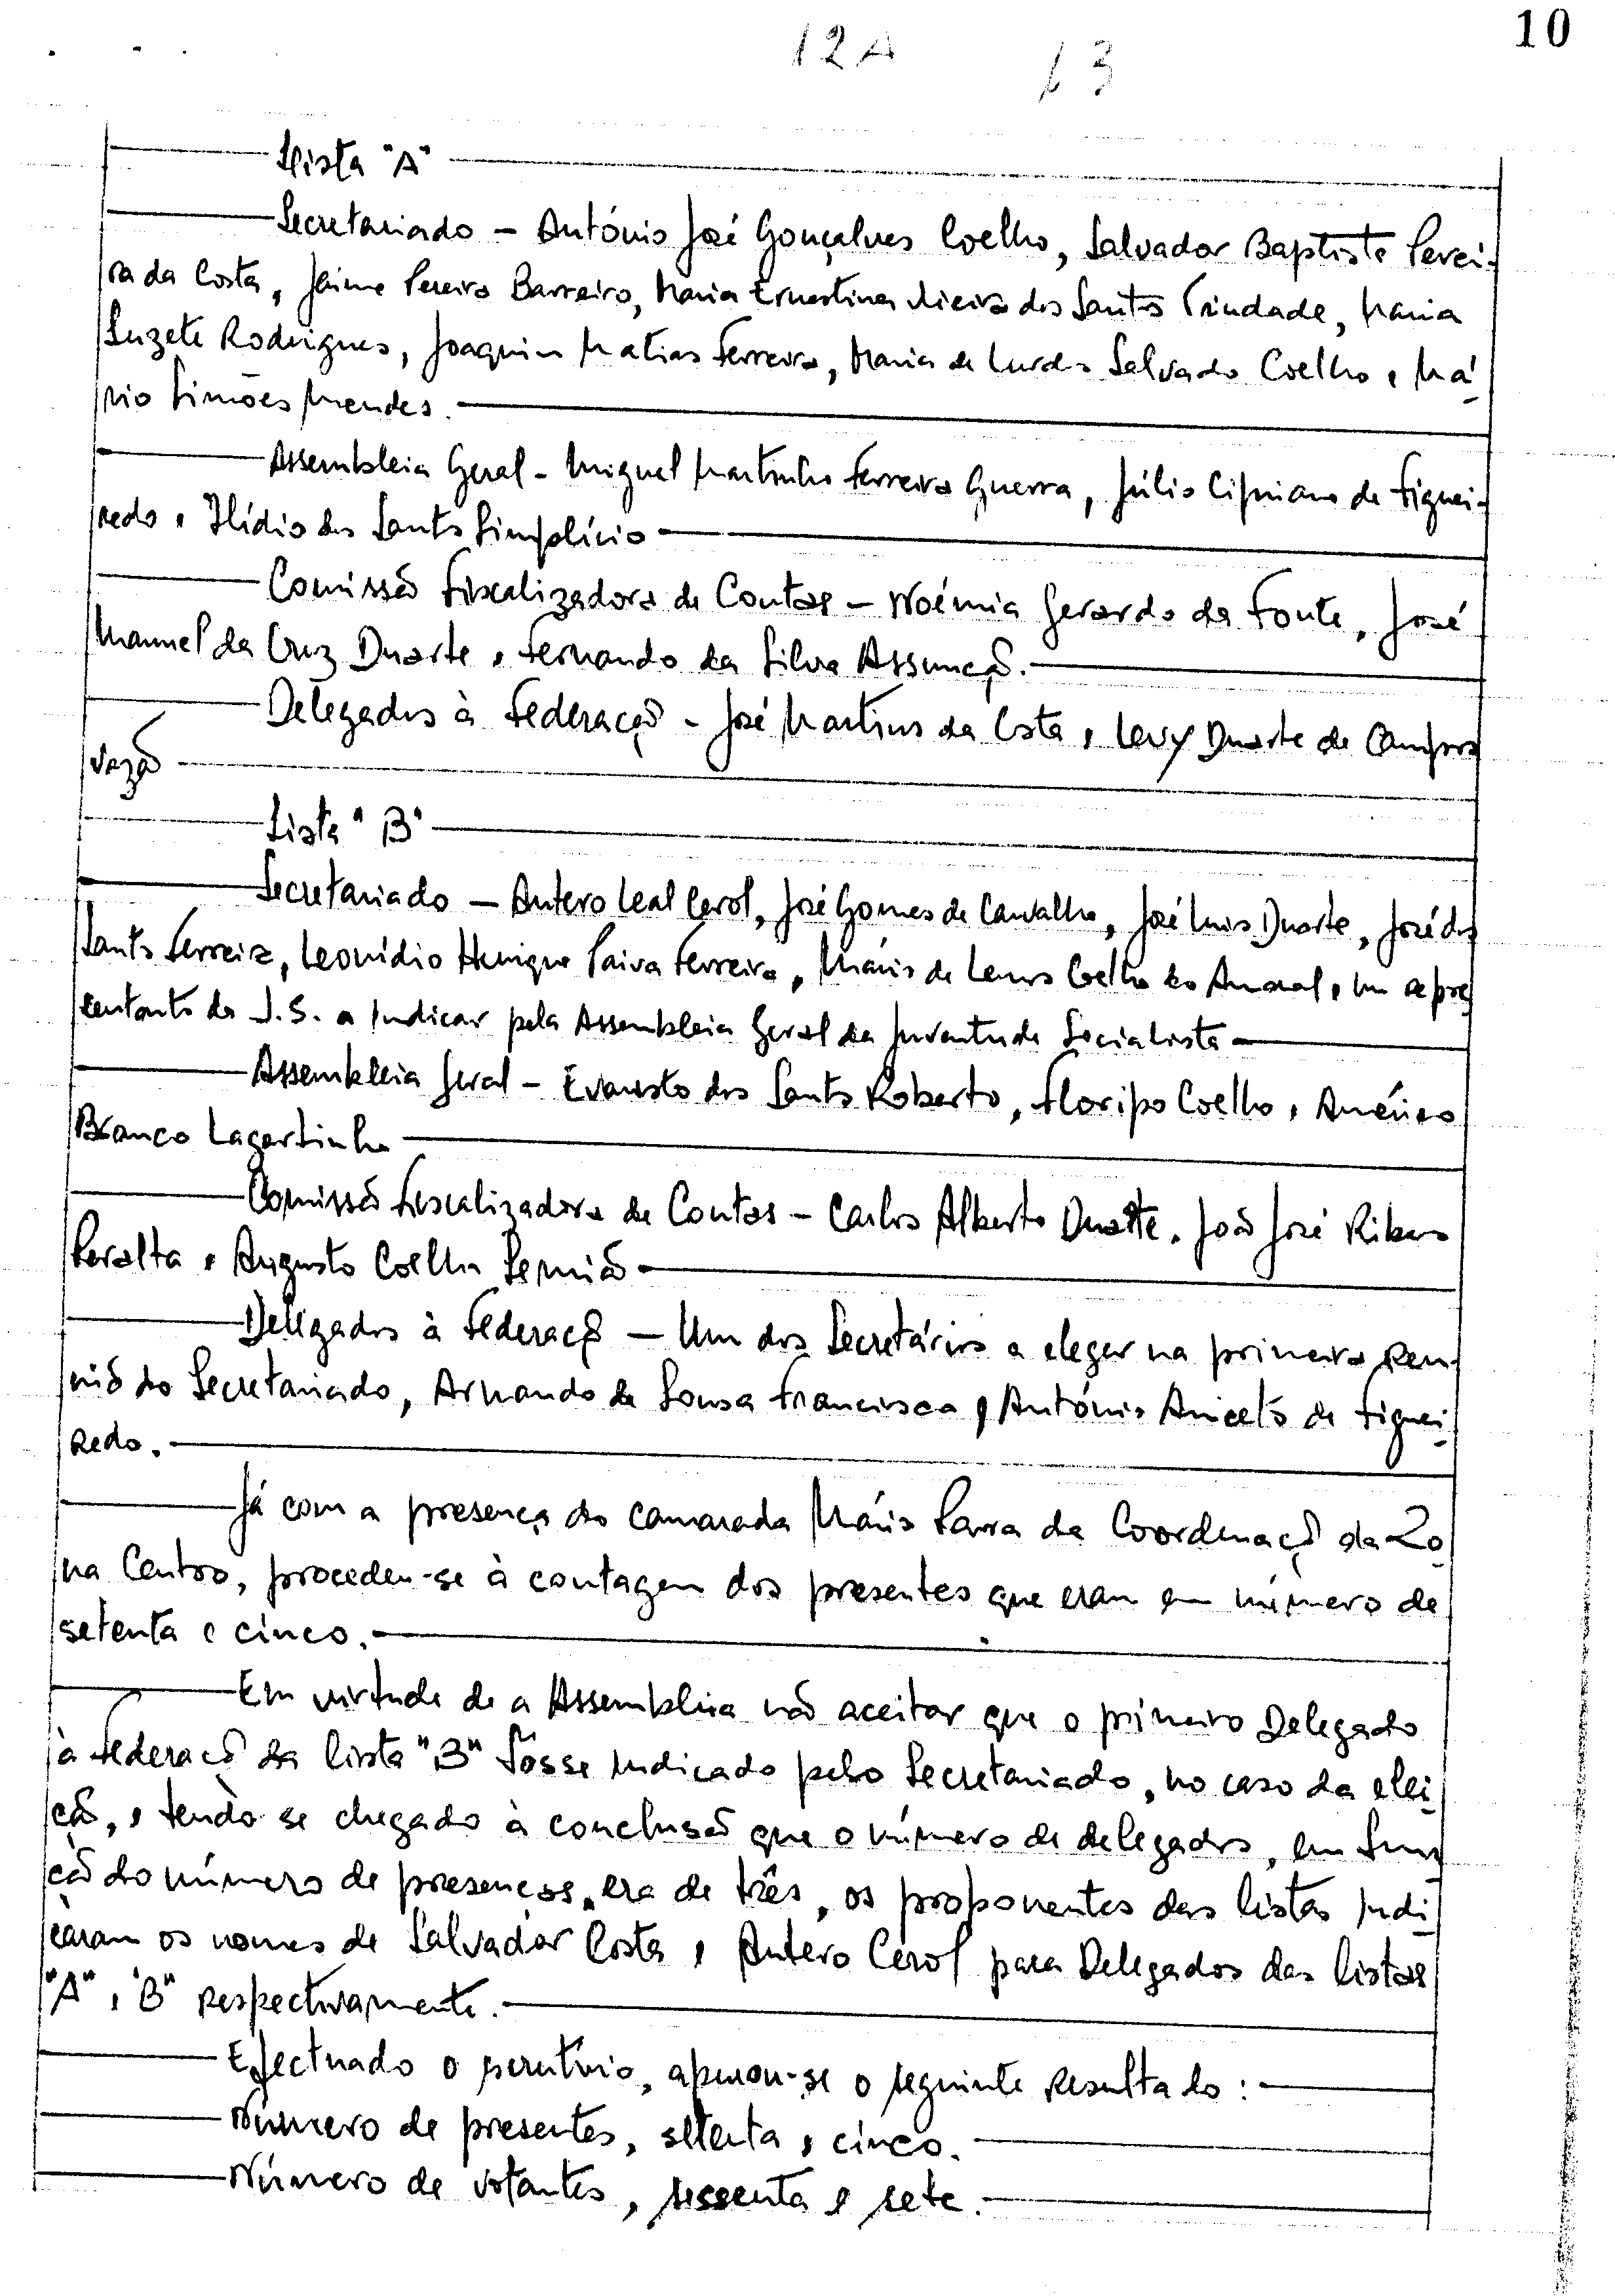 10
12A 13
Lista "A"
Secretariado – António José Gonçalves Coelho, Salvador Baptista Perei-
ra da Costa, Jaime Pereira Barreiro, Maria Ernestina Vieira dos Santos Trindade, Maria
Suzete Rodrigues, Joaquim Matias Ferreira, Maria de Lurdes Salvado Coelho e Má-
rio Simões Mendes.
Assembleia Geral – Miguel Martinho Ferreira Guerra, Júlio Cipriano de Figuei-
redo e Ilídio dos Santos Simplício
Comissão Fiscalizadora de Contas – Noémia Gerardo da Fonte, José
Manuel da Cruz Duarte e Fernando da Silva Assunção.
Delegados à Federação – José Martins da Costa e Levy Duarte de Campos
Vazão
Lista "B"
Secretariado – Antero Leal Cerol, José Gomes de Carvalho, José Luis Duarte, José dos
Santos Ferreira, Leonídio Henrique Paiva Ferreira, Mário de Lemos Coelho do Amaral e um repre
sentante da J.S. a indicar pela Assembleia Geral da Juventude Socialista
Assembleia Geral – Evaristo dos Santos Roberto, Floripo Coelho e Américo
Branco Lagartinho
Comissão Fiscalizadora de Contas – Carlos Alberto Duarte, João José Ribeiro
Peralta e Augusto Coelho Semião
Delegados à Federação – Um dos Secretários a eleger na primeira reu-
nião do Secretariado, Armando de Sousa Francisco e António Aniceto de Figuei-
redo.
Já com a presença do camarada Mário Parra da Coordenação da Zo-
na Centro, procedeu-se à contagem dos presentes que eram em número de
setenta e cinco.
Em virtude de a Assembleia não aceitar que o primeiro Delegado
à Federação da lista "B" fôsse indicado pelo Secretariado, no caso da elei-
ção, e tendo-se chegado à conclusão que o número de delegados, em fun-
ção do número de presenças, era de três, os proponentes das listas indi-
caram os nomes de Salvador Costa e Antero Cerol para Delegados das listas
"A" e "B" respectivamente.
Efectuado o escrutínio, apurou-se o seguinte resultado:
Número de presentes, setenta e cinco.
Número de votantes, sessenta e sete.